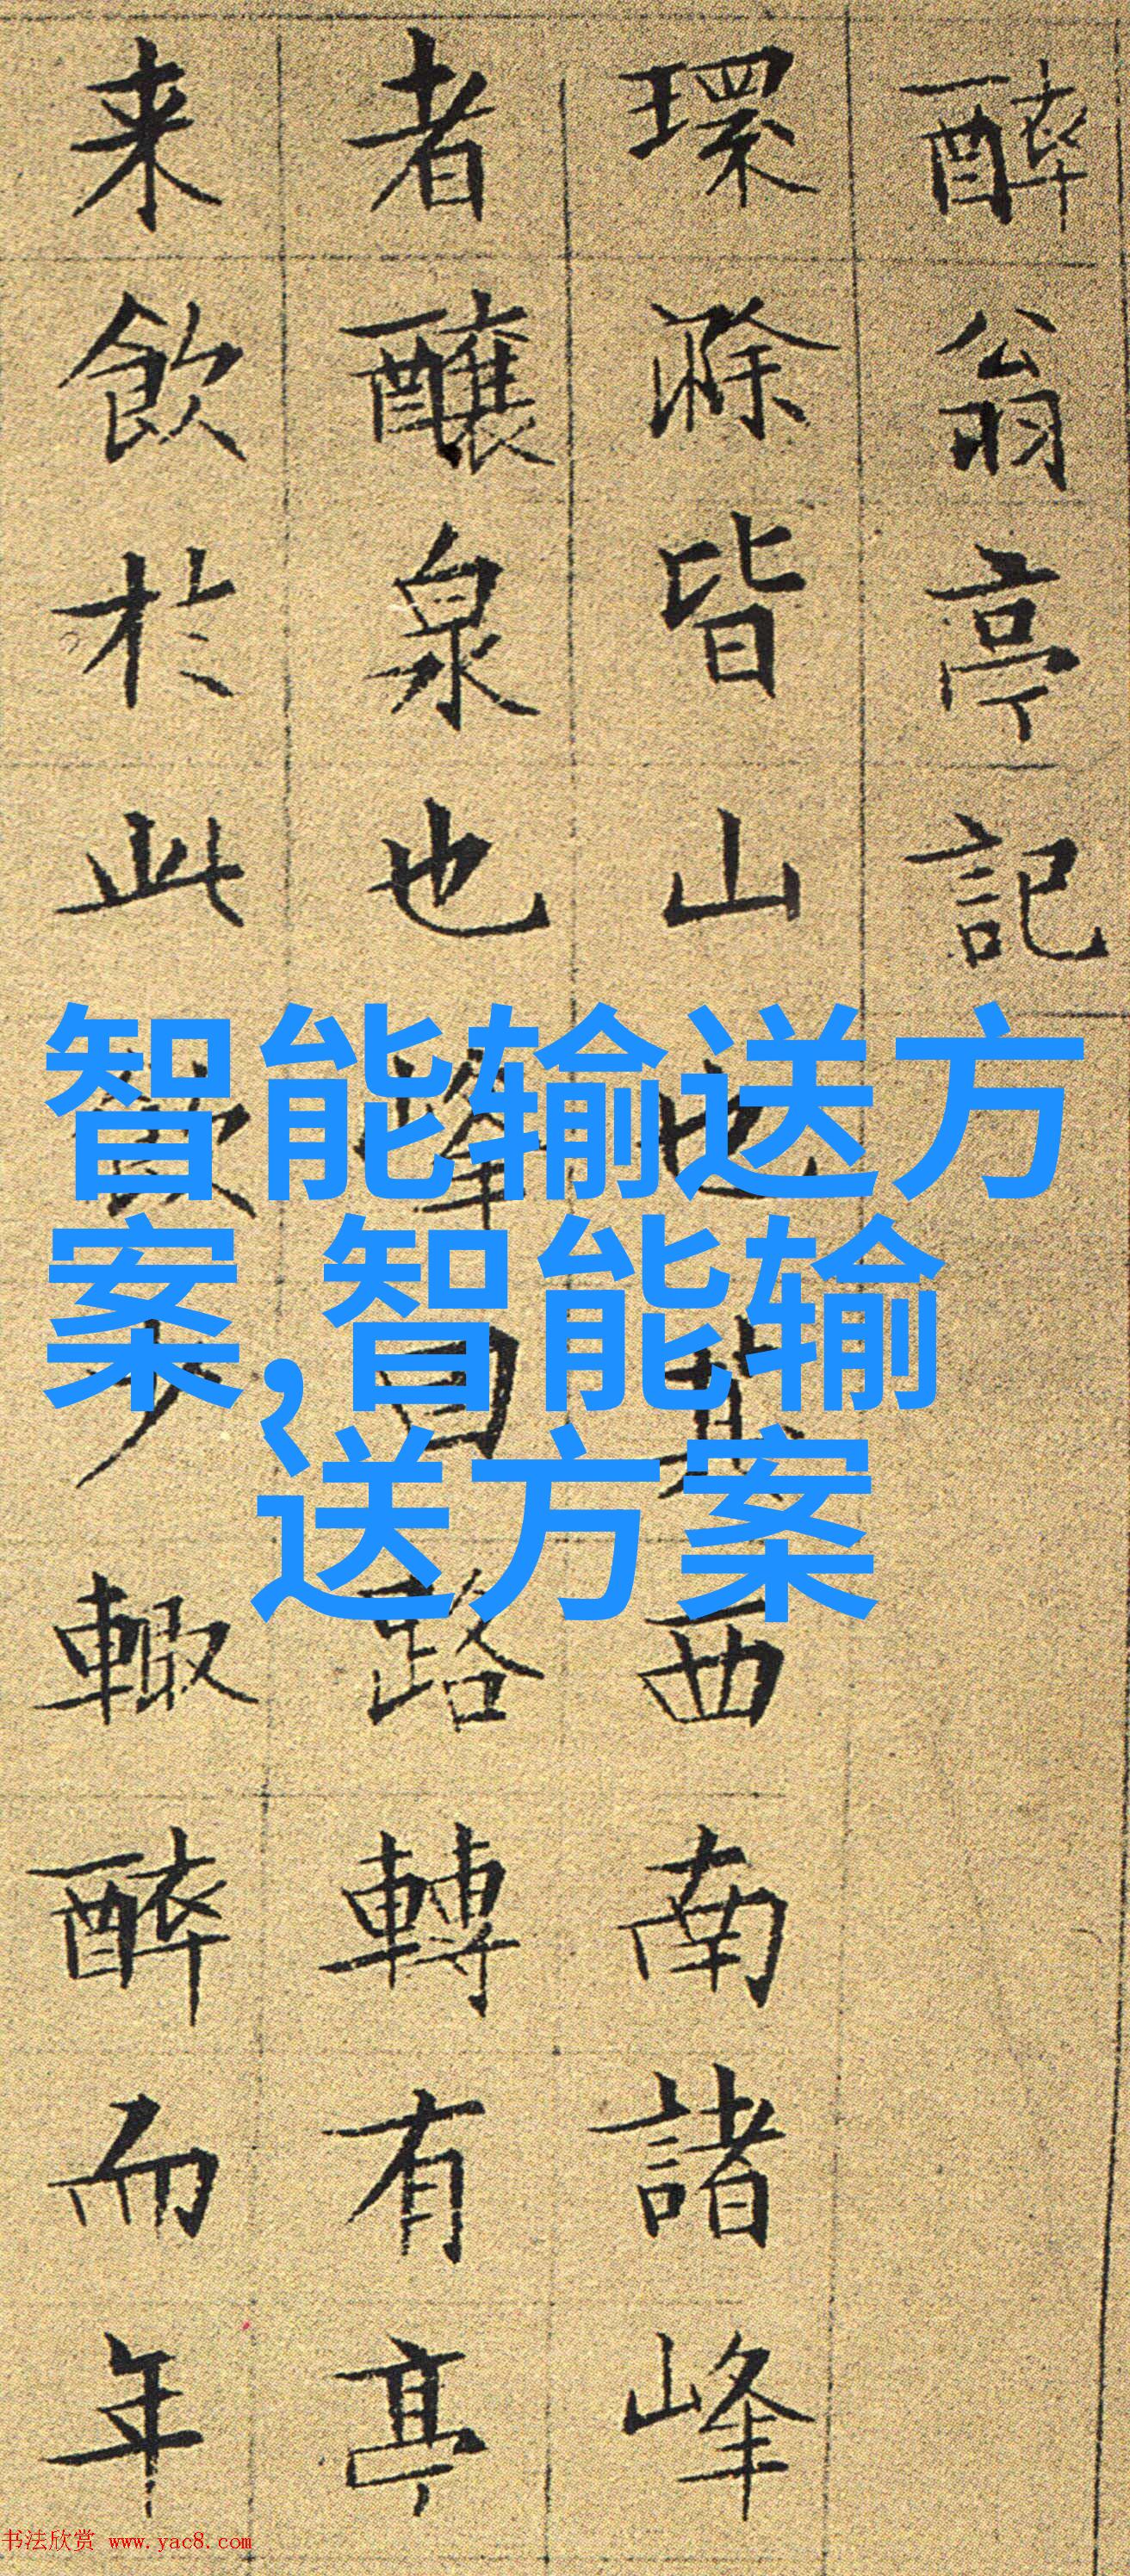 醉翁亭記
環滁皆山也其西南諸峰
者釀泉也峰回路轉有亭
来飲於此飲少輒醉而年
智能输送方
案,智能输
送方案
书法欣赏 www.yac8.com